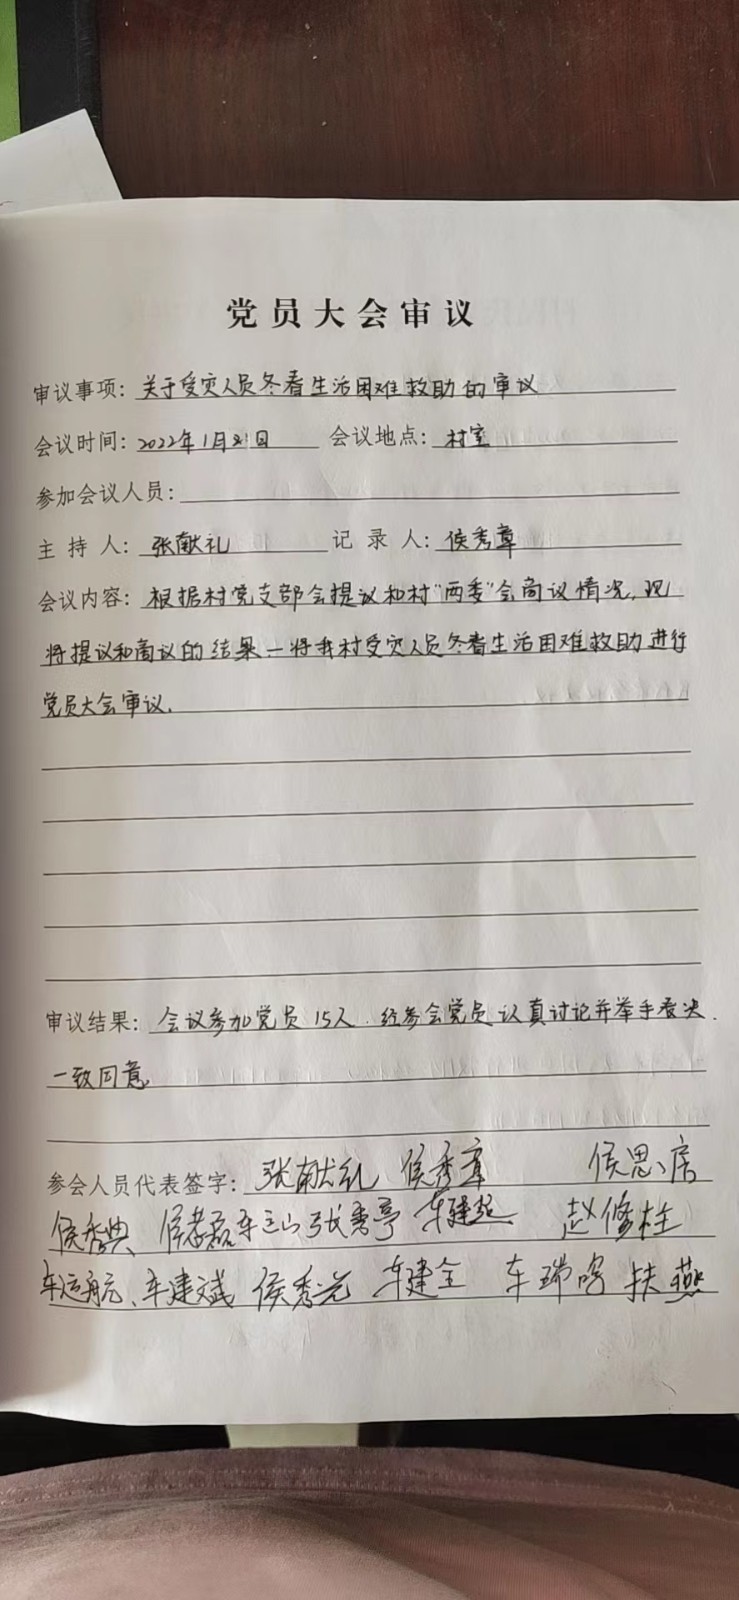 党员大会审议
审议事项：关于受灾人员冬春生活困难救助的审议
会议时间：2022年1月21日 会议地点：村室
参加会议人员：
主持人：张献礼 记录人：侯秀章
会议内容：根据村党支部会提议和村“两委”会商议情况，现
将提议和商议的结果—将我村受灾人员冬春生活困难救助进行
党员大会审议。
审议结果：会议参加党员15人，经参会党员认真讨论并举手表决，
一致同意。
参会人员代表签字：张献礼 侯秀章 侯思房
侯秀典 侯孝磊 车三山 张秀亭 车建超 赵修柱
车运航、车建斌 侯秀光 车建全 车瑞 扶燕